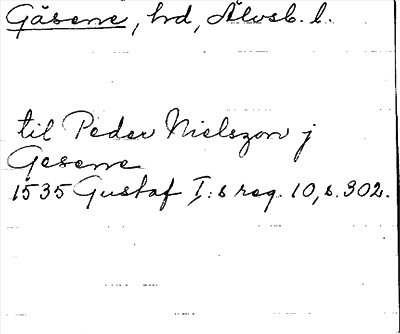 Gäsene, hd, Älvsb. l.
til Peder Nielszon j
Gesene
1535 Gustaf I:s reg. 10, s. 302.